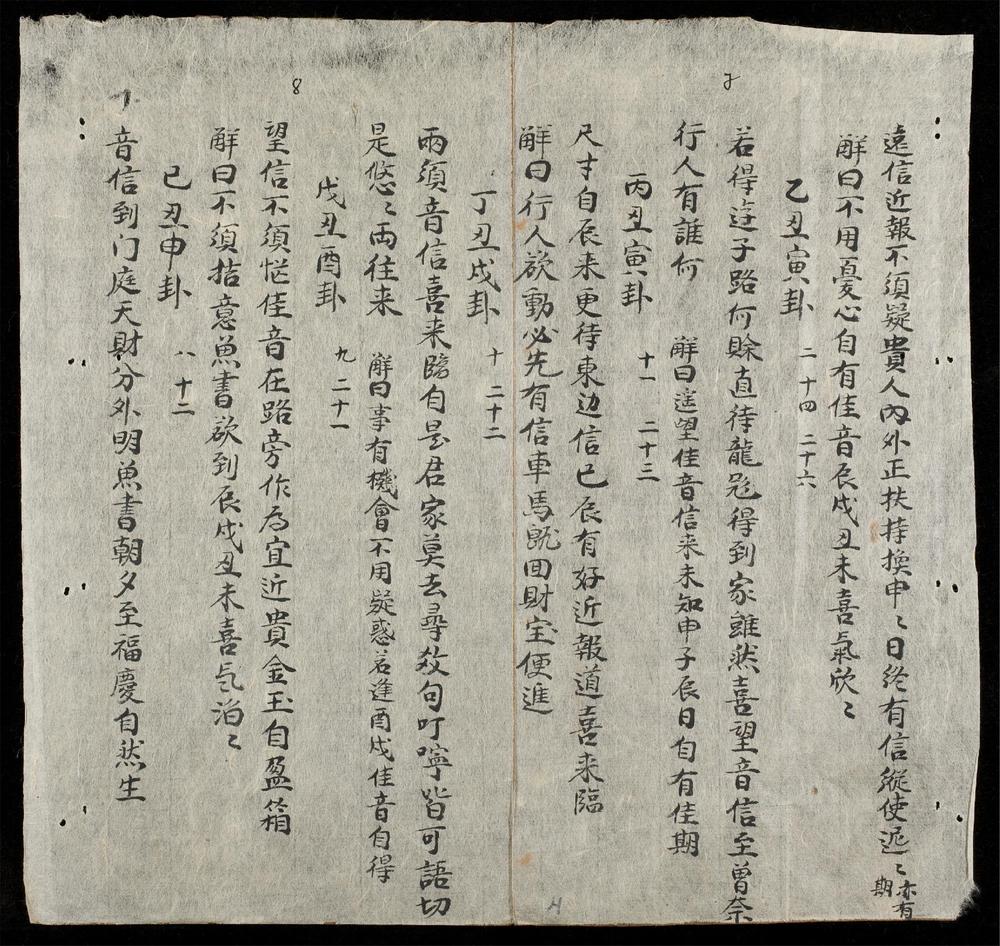 遠信近報不須疑貴人內外正扶持換申〻日終有信縱使遲〻亦有期
解曰不用憂心自有佳音辰戌丑未喜氣欣〻
乙丑寅卦 二 十四 二十六
若得遊子路何賖直待龍兎得到家雖然喜望音信至曾奈
行人有誰何 解曰遥望佳音信来未知申子辰日自有佳期
丙丑寅卦 十一 二十三
尺寸自辰来更待東边信已辰有好近報道喜来臨
解曰行人欲動必先有信車馬既回財宝便進
丁丑戌卦 十 二十二
雨須音信喜来臨自是君家莫去尋效句叮嚀皆可語切
是悠〻両往来 解曰事有機會不用疑惑若逢酉戌佳音自得
戊丑酉卦 九 二十一
望信不須怪佳音在路旁作为宜近貴金玉自盈箱
解曰不須掛意魚書欲到辰戌丑未喜气滔〻
己丑申卦 八 十二
音信到门庭天財分外明魚書朝夕至福慶自然生
8